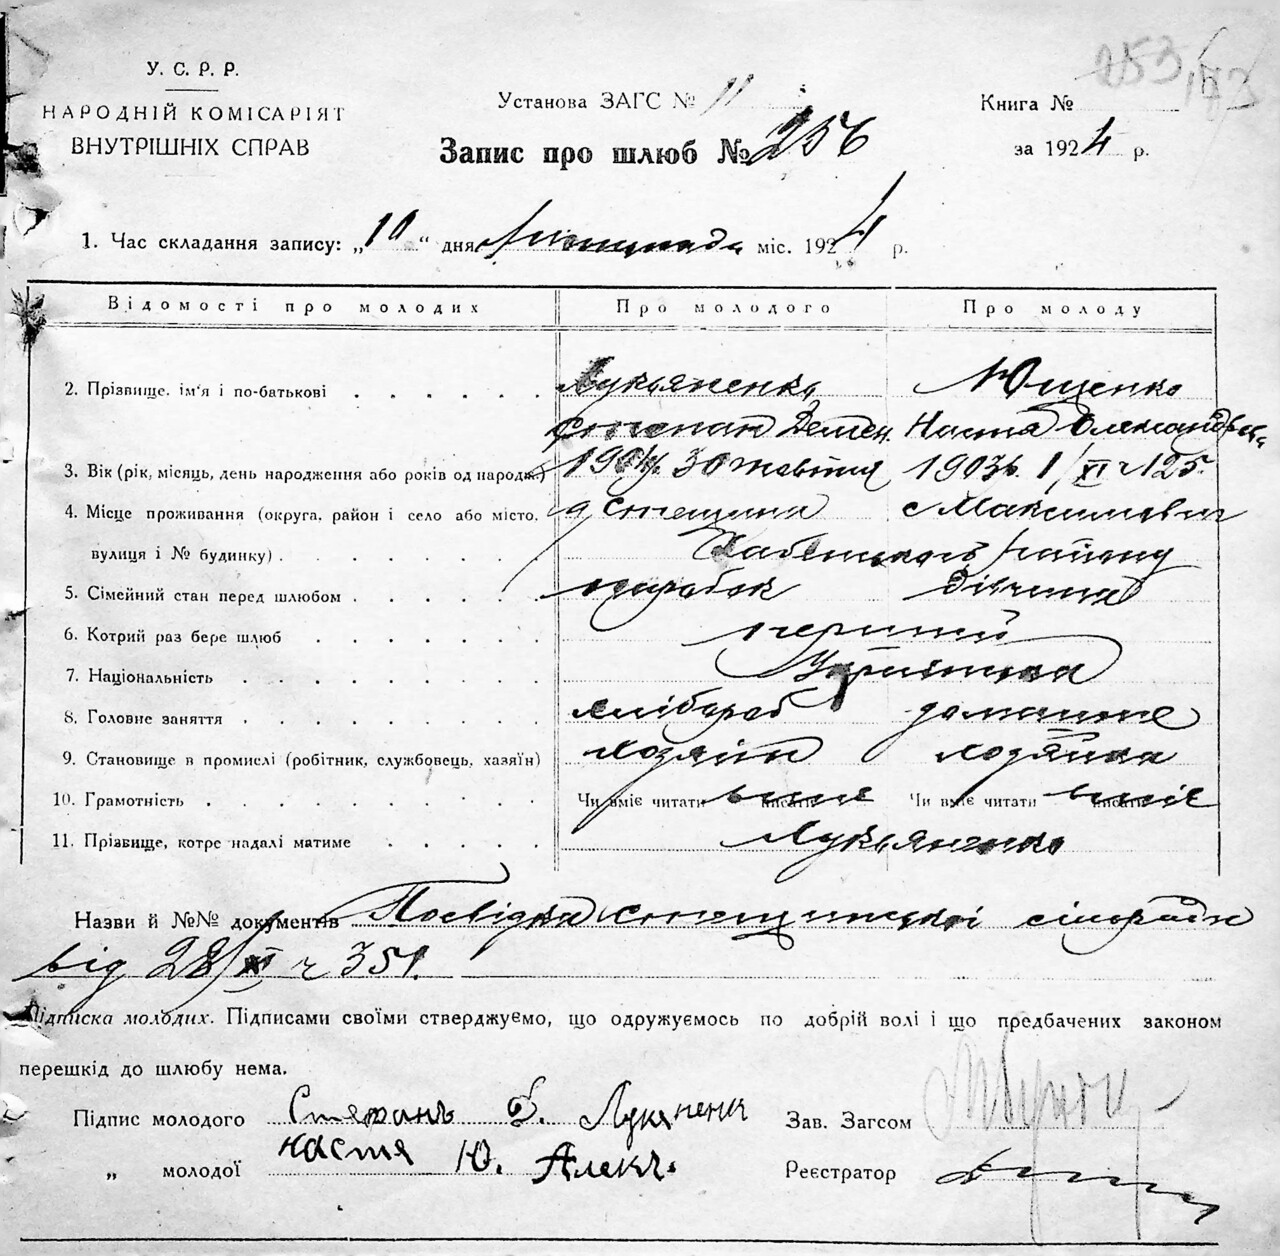 253
У. С. Р. Р.
НАРОДНІЙ КОМІСАРІЯТ
ВНУТРІШНІХ СПРАВ
Установа ЗАГС № 11
Книга №
Запис про шлюб № 256
за 1924 р.
1. Час складання запису: „10“ дня листопада міс. 1924 р.
Відомості про молодих Про молодого Про молоду
2. Прізвище, ім'я і по-батькові Лукьяненко Ющенко
Степан Демен. Настя Олександр
3. Вік (рік, місяць, день народження або років од народж.) 1904 30 жовтня 1903 1/XI ч 125
4. Місце проживання (округа, район і село або місто, с Стещина с Максимович
вулиця і № будинку) Хабенського району
5. Сімейний стан перед шлюбом парубок дівчина
6. Котрий раз бере шлюб перший
7. Національність
8. Головне заняття хлібороб домашнє
9. Становище в промислі (робітник, службовець, хазяїн) хозяін хозяйка
10. Грамотність Чи вміє читати вміє писати Чи вміє читати вміє писати
11. Прізвище, котре надалі матиме Лукьяненко
Назви й №№ документів Посвідка Стещинської сільради
від 28/XI ч 351.
Підписка молодих. Підписами своїми стверджуємо, що одружуємось по добрій волі і що предбачених законом
перешкід до шлюбу нема.
Підпис молодого Степанъ Д. Лукяненк Зав. Загсом
„ молодої Настя Ю. Алекъ. Реєстратор